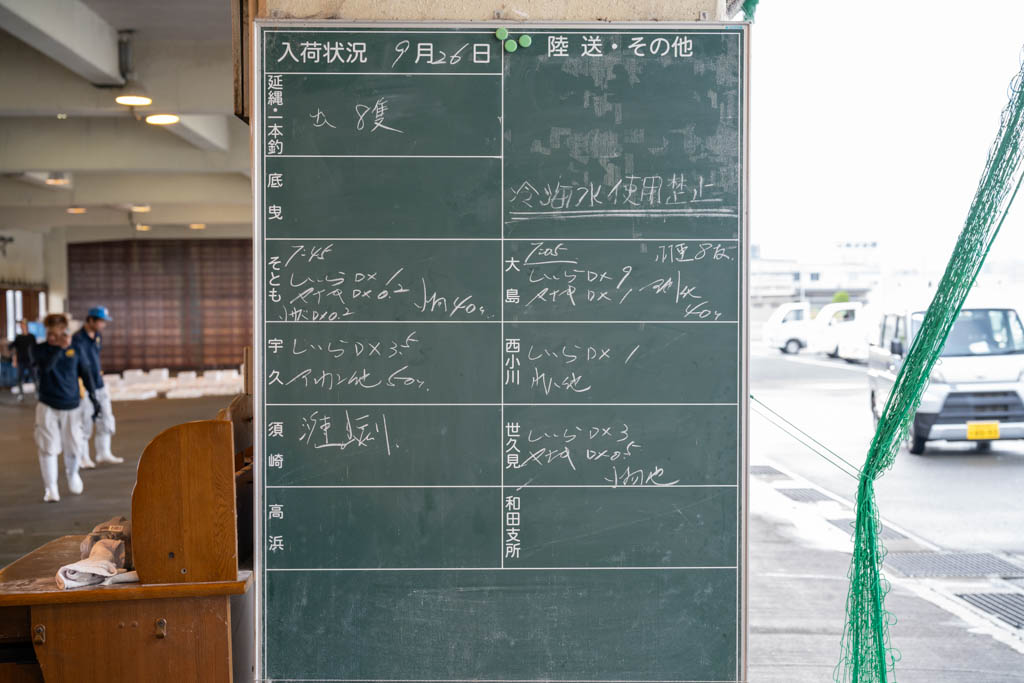 入荷状況 9月26日
陸送・その他
延縄・一本釣
8隻
底曳
冷海水使用禁止
そとも
7:45
しいらDX 1
DX 0.2
DX 0.2
40ケ
大島
7:05
しいらDX 9
DX 1
40ケ
宇久
しいらDX 3.5
他 50ケ
西小川
しいらDX 1
他
須崎
世久見
しいらDX 3
DX 0.5
小物他
高浜
和田支所